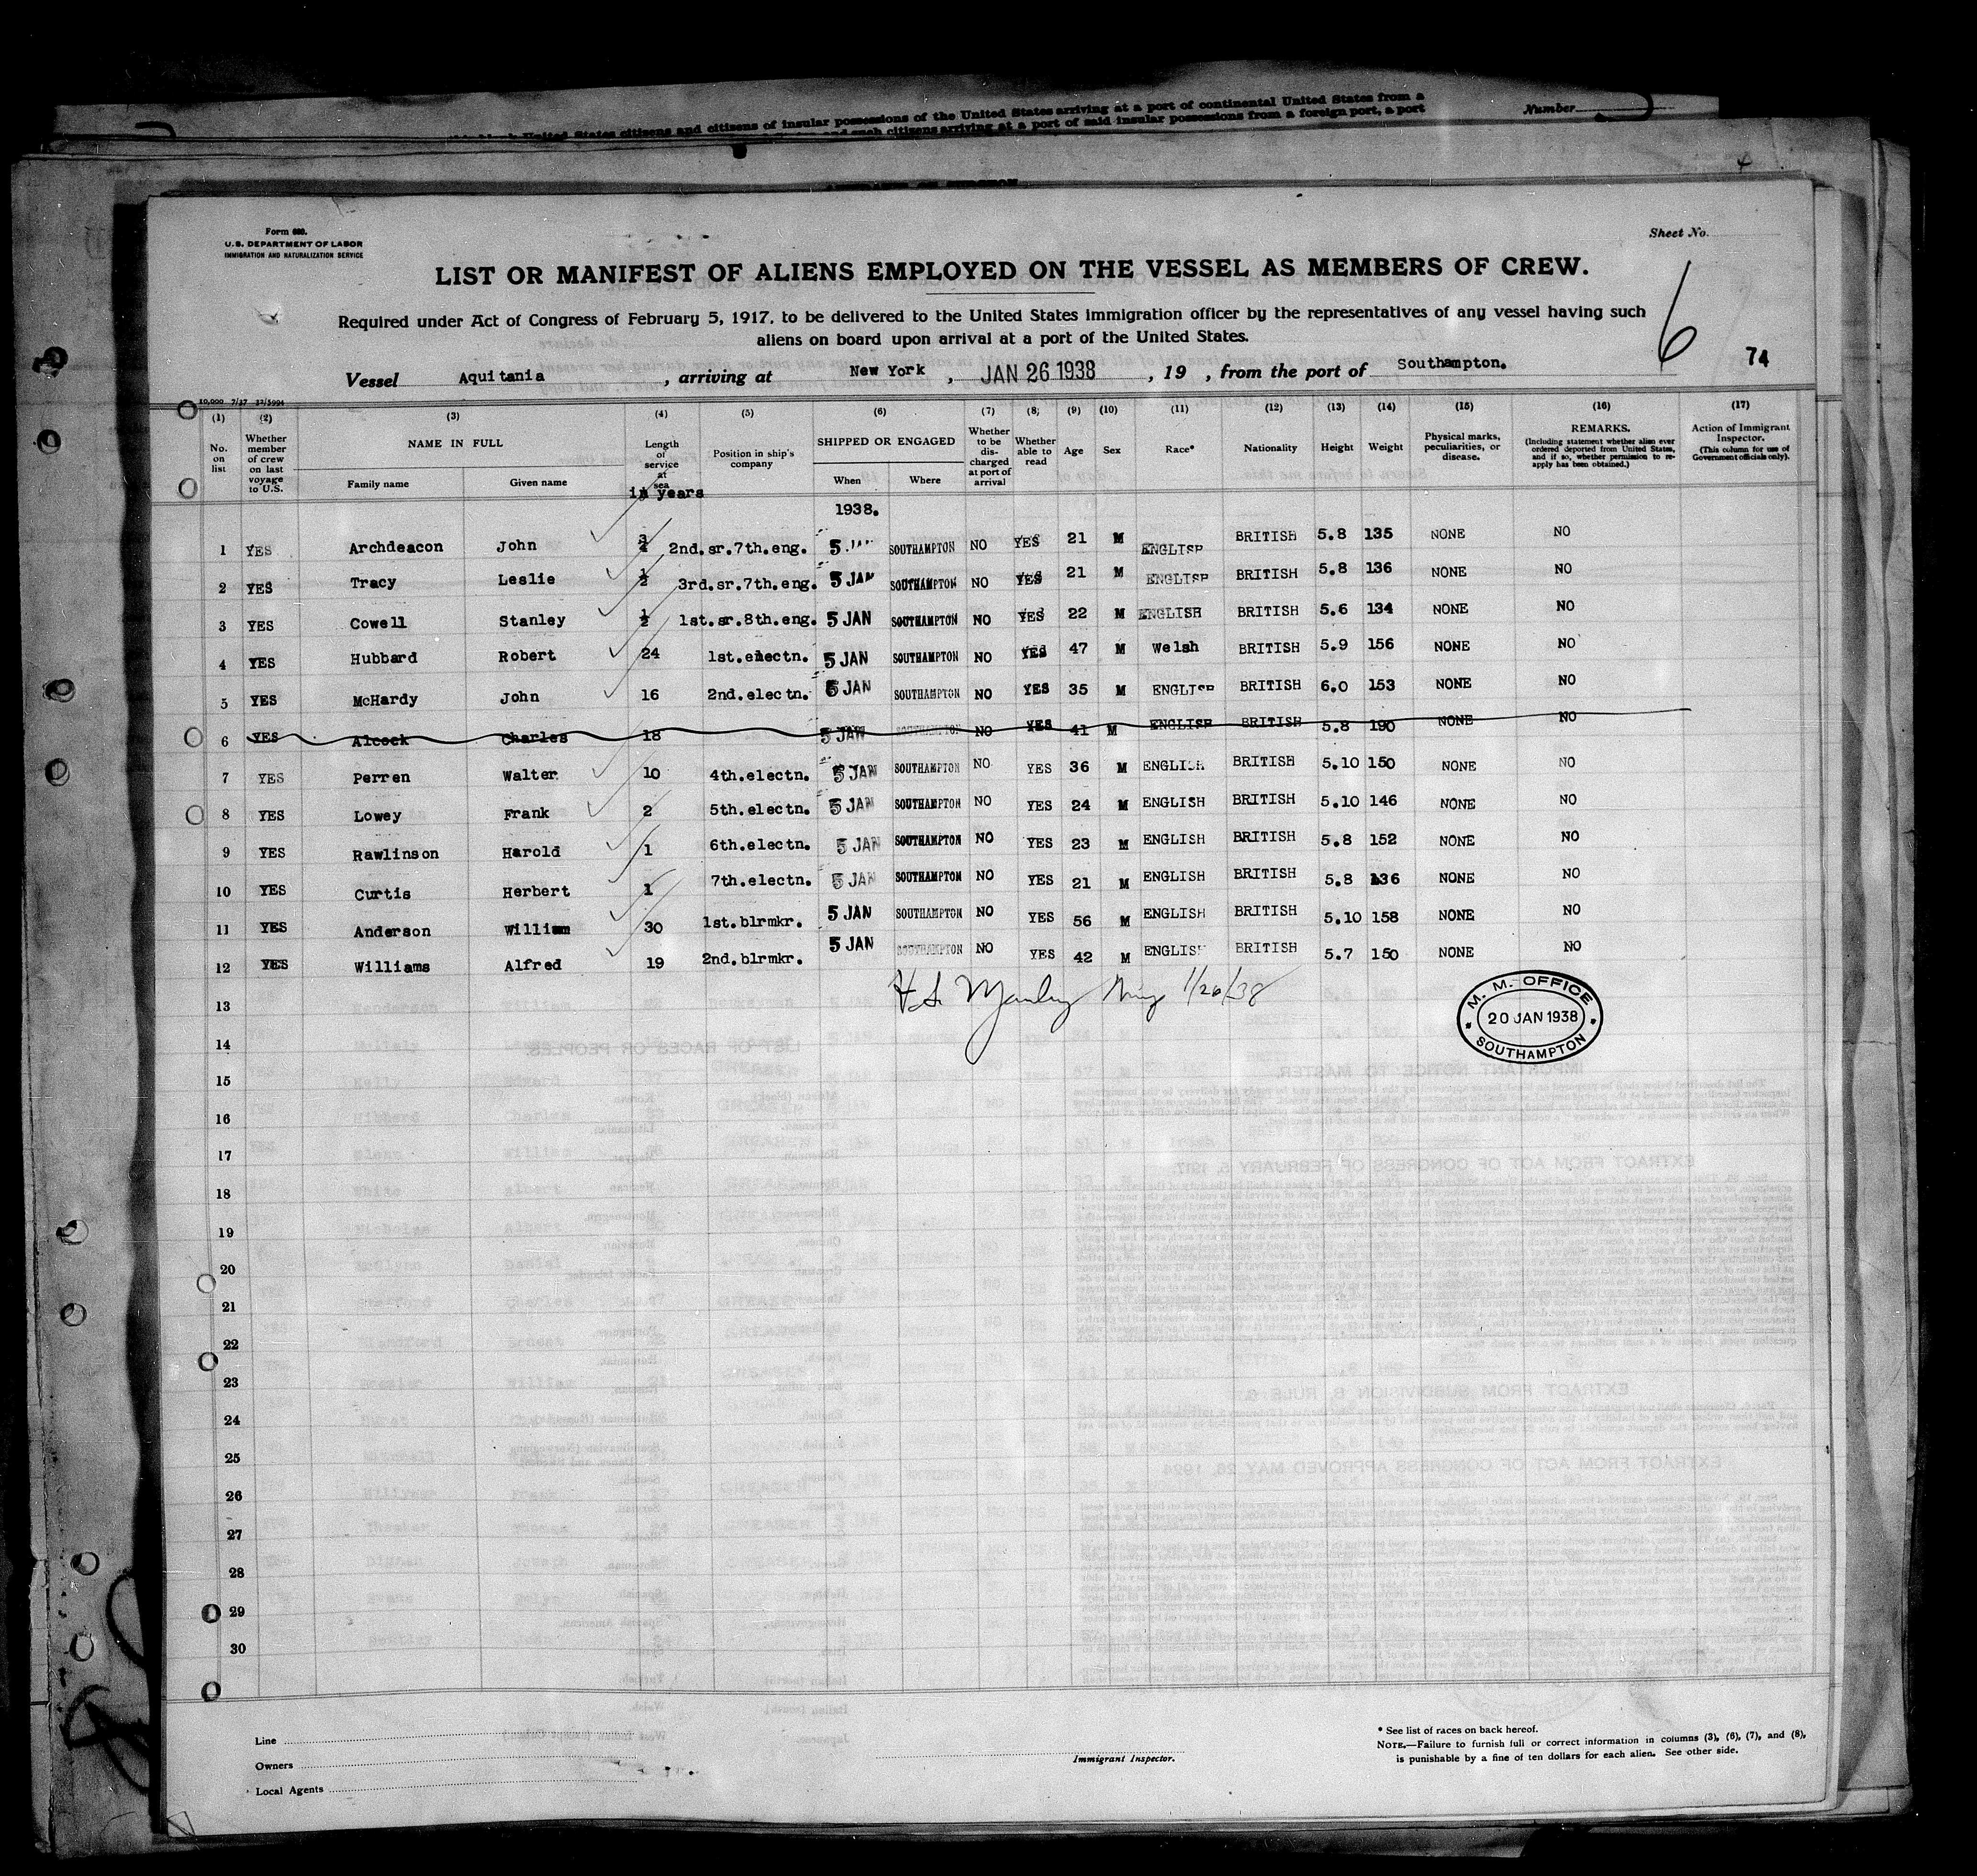 United States citizens and citizens of insular possessions of the United States arriving at a port of continental United States from a
and such citizens arriving at a port of said insular possessions from a foreign port, a port
Number
4
Form 680.
U.S. DEPARTMENT OF LABOR
IMMIGRATION AND NATURALIZATION SERVICE
Sheet No.
LIST OR MANIFEST OF ALIENS EMPLOYED ON THE VESSEL AS MEMBERS OF CREW.
Required under Act of Congress of February 5, 1917, to be delivered to the United States immigration officer by the representatives of any vessel having such
aliens on board upon arrival at a port of the United States.
6
74
Vessel Aquitania, arriving at New York, JAN 26 1938, 19 , from the port of Southampton.
10,000 7/37 32/5994
(1) (2) (3) (4) (5) (6) (7) (8) (9) (10) (11) (12) (13) (14) (15) (16) (17)
No. on list
Whether member of crew on last voyage to U.S.
NAME IN FULL
Family name
Given name
Length of service at sea
in years
Position in ship's company
SHIPPED OR ENGAGED
When
Where
Whether to be discharged at port of arrival
Whether able to read
Age
Sex
Race*
Nationality
Height
Weight
Physical marks, peculiarities, or disease.
REMARKS.
(Including statement whether alien ever ordered deported from United States, and if so, whether permission to reapply has been obtained.)
Action of Immigrant Inspector.
(This column for use of Government officials only).
1938.
1 YES Archdeacon John 3/4 2nd.sr.7th.eng. 5 JAN SOUTHAMPTON NO YES 21 M ENGLISH BRITISH 5.8 135 NONE NO
2 YES Tracy Leslie 1/2 3rd.sr.7th.eng. 5 JAN SOUTHAMPTON NO YES 21 M ENGLISH BRITISH 5.8 136 NONE NO
3 YES Cowell Stanley 1/2 1st.sr.8th.eng. 5 JAN SOUTHAMPTON NO YES 22 M ENGLISH BRITISH 5.6 134 NONE NO
4 YES Hubbard Robert 24 1st.electn. 5 JAN SOUTHAMPTON NO YES 47 M Welsh BRITISH 5.9 156 NONE NO
5 YES McHardy John 16 2nd.electn. 5 JAN SOUTHAMPTON NO YES 35 M ENGLISH BRITISH 6.0 153 NONE NO
6 YES Alcock Charles 18 5 JAN SOUTHAMPTON NO YES 41 M ENGLISH BRITISH 5.8 190 NONE NO
7 YES Perren Walter 10 4th.electn. 5 JAN SOUTHAMPTON NO YES 36 M ENGLISH BRITISH 5.10 150 NONE NO
8 YES Lowey Frank 2 5th.electn. 5 JAN SOUTHAMPTON NO YES 24 M ENGLISH BRITISH 5.10 146 NONE NO
9 YES Rawlinson Harold 1 6th.electn. 5 JAN SOUTHAMPTON NO YES 23 M ENGLISH BRITISH 5.8 152 NONE NO
10 YES Curtis Herbert 1 7th.electn. 5 JAN SOUTHAMPTON NO YES 21 M ENGLISH BRITISH 5.8 136 NONE NO
11 YES Anderson William 30 1st.blrmkr. 5 JAN SOUTHAMPTON NO YES 56 M ENGLISH BRITISH 5.10 158 NONE NO
12 YES Williams Alfred 19 2nd.blrmkr. 5 JAN SOUTHAMPTON NO YES 42 M ENGLISH BRITISH 5.7 150 NONE NO
1/26/38
M. M. OFFICE
20 JAN 1938
SOUTHAMPTON
13
14
15
16
17
18
19
20
21
22
23
24
25
26
27
28
29
30
Line
Owners
Local Agents
Immigrant Inspector.
* See list of races on back hereof.
NOTE.—Failure to furnish full or correct information in columns (3), (6), (7), and (8),
is punishable by a fine of ten dollars for each alien. See other side.